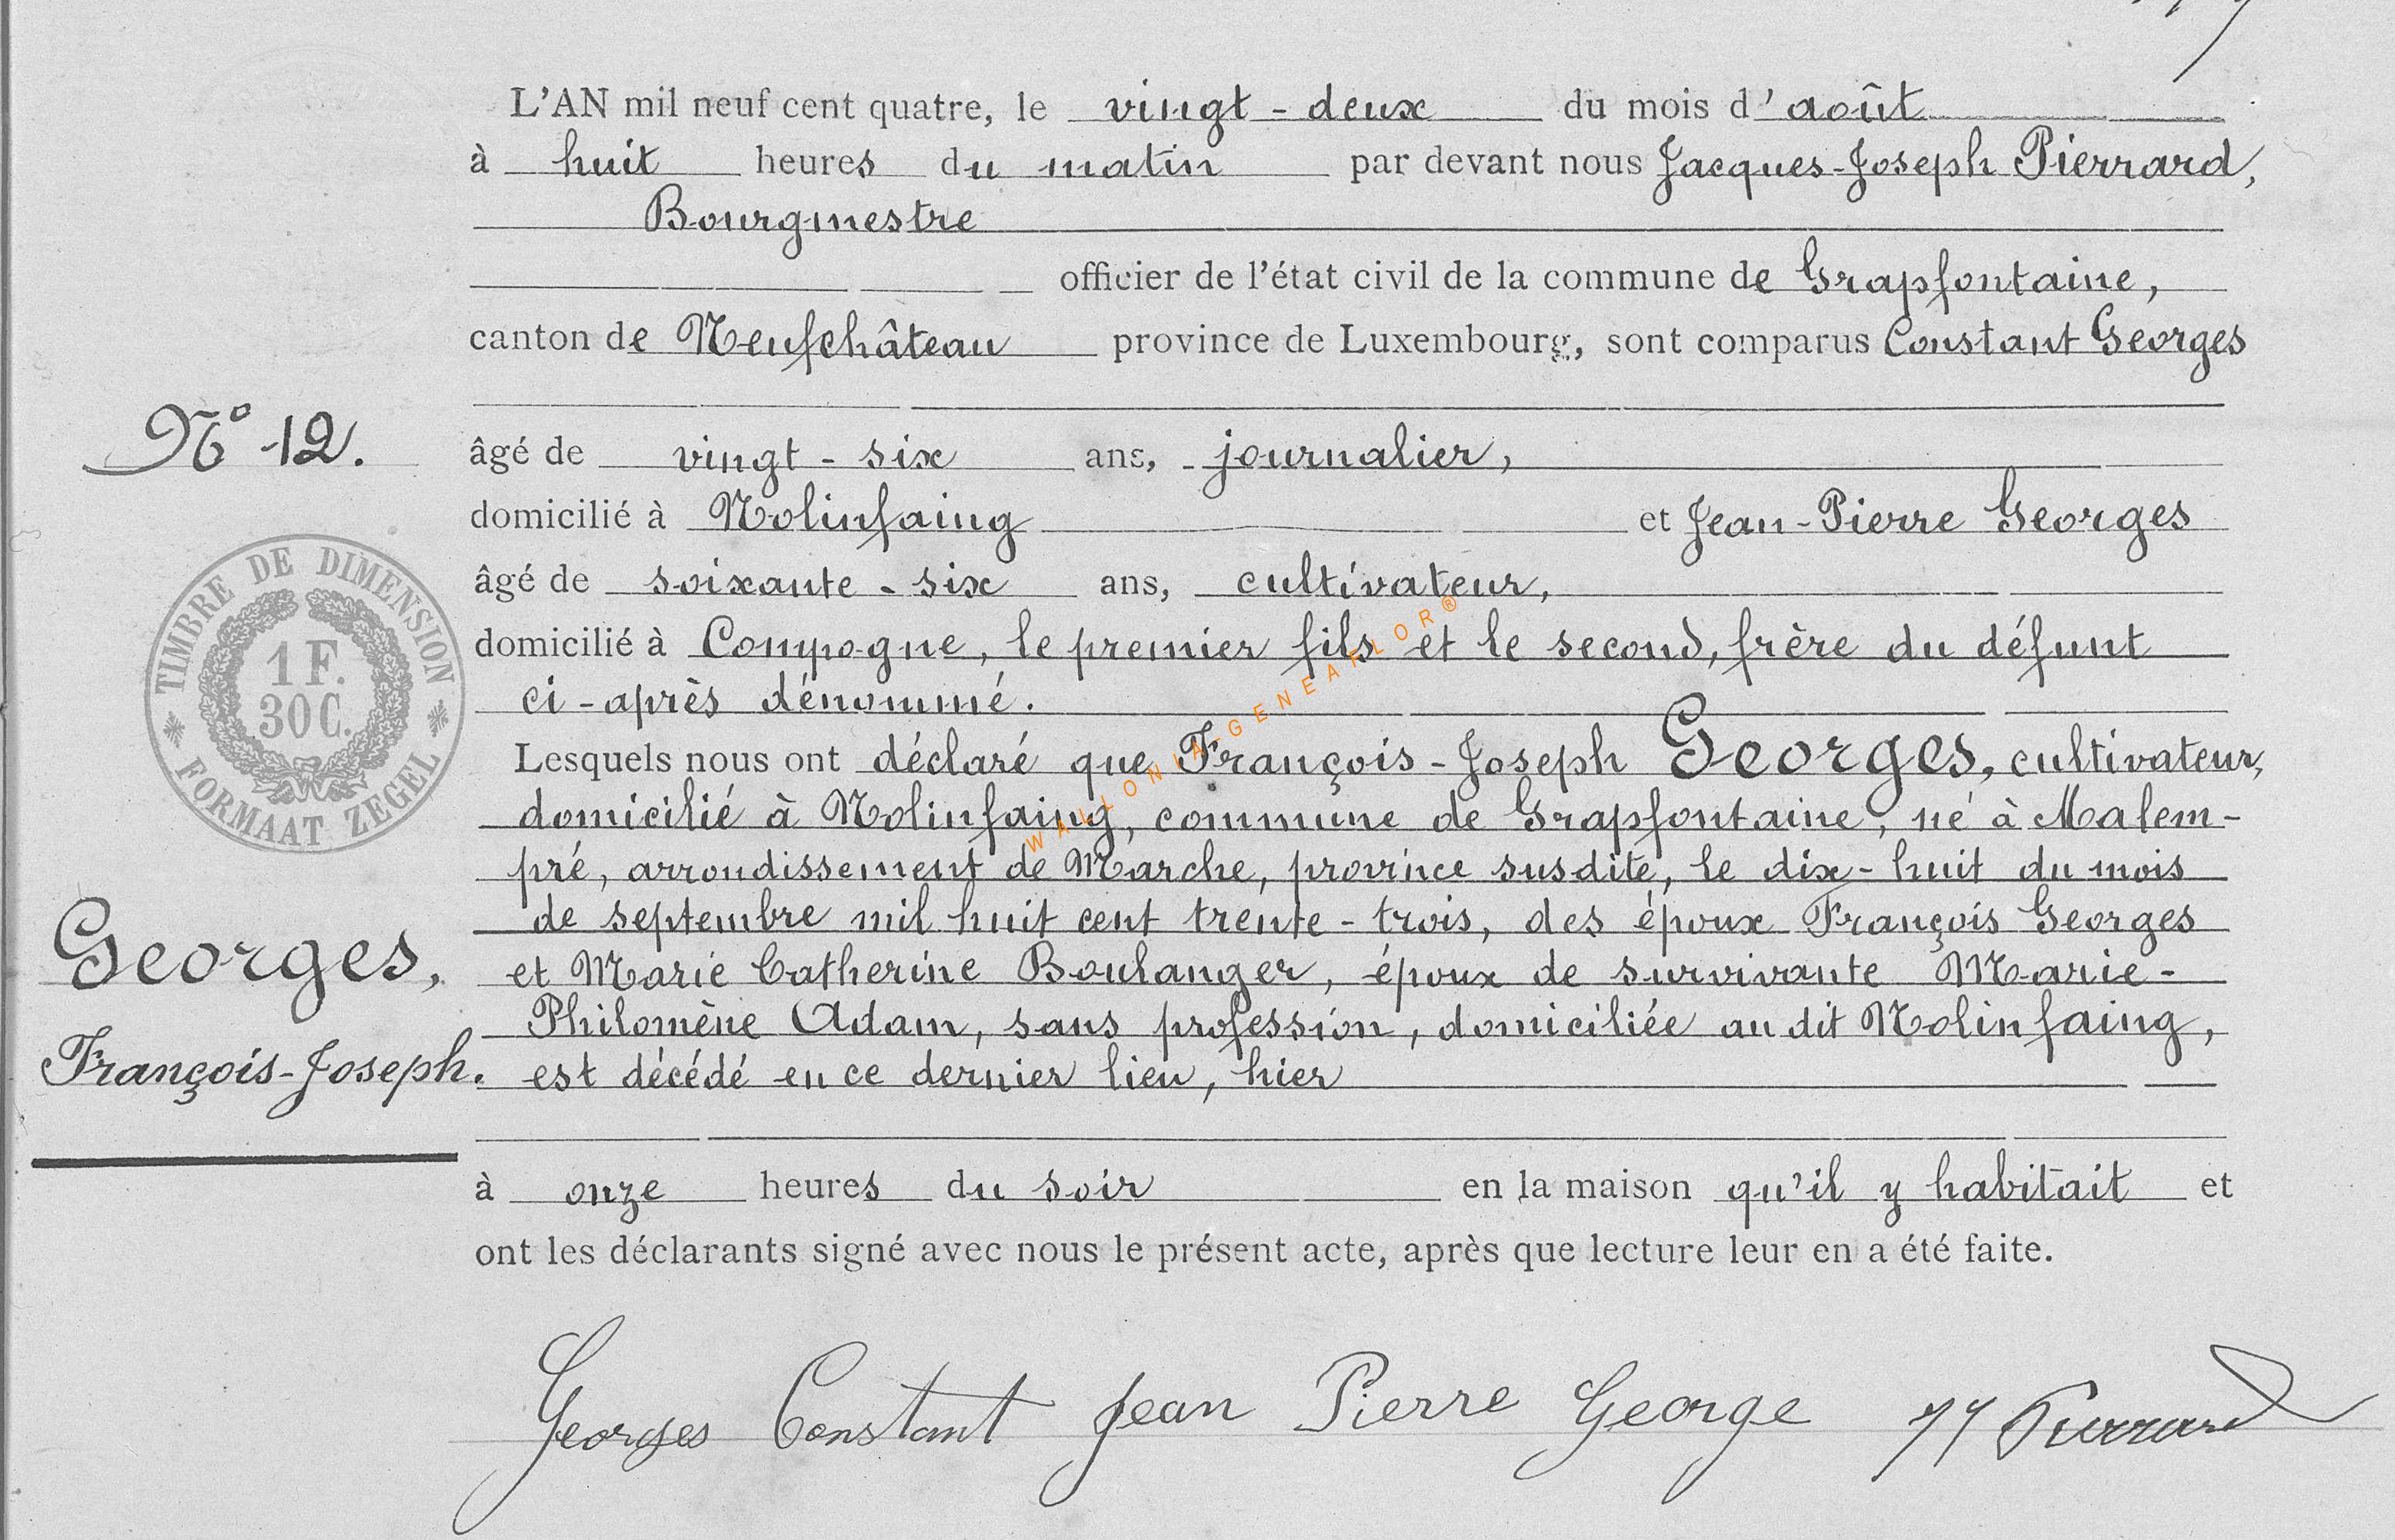 L'AN mil neuf cent quatre, le vingt-deux du mois d'août
à huit heures du matin par devant nous Jacques-Joseph Pierrard,
Bourgmestre
officier de l'état civil de la commune de Grapfontaine,
canton de Neufchâteau province de Luxembourg, sont comparus Constant Georges
N° 12.
âgé de vingt-six ans, journalier,
domicilié à Nolinfaing et Jean-Pierre Georges
âgé de soixante-six ans, cultivateur,
domicilié à Compogne, le premier fils et le second, frère du défunt
ci-après dénommé.
TIMBRE DE DIMENSION
1 F.
30 C.
FORMAAT ZEGEL
WALLONIA-GENEAFLOR®
Lesquels nous ont déclaré que François-Joseph Georges, cultivateur,
domicilié à Nolinfaing, commune de Grapfontaine, né à Malem-
pré, arrondissement de Marche, province susdite, le dix-huit du mois
de septembre mil huit cent trente-trois, des époux François Georges
et Marie Catherine Boulanger, époux de survivante Marie-
Philomène Adam, sans profession, domiciliée au dit Nolinfaing,
est décédé en ce dernier lieu, hier
Georges,
François-Joseph.
à onze heures du soir en la maison qu'il y habitait et
ont les déclarants signé avec nous le présent acte, après que lecture leur en a été faite.
Georges Constant Jean Pierre George JJ Pierrard